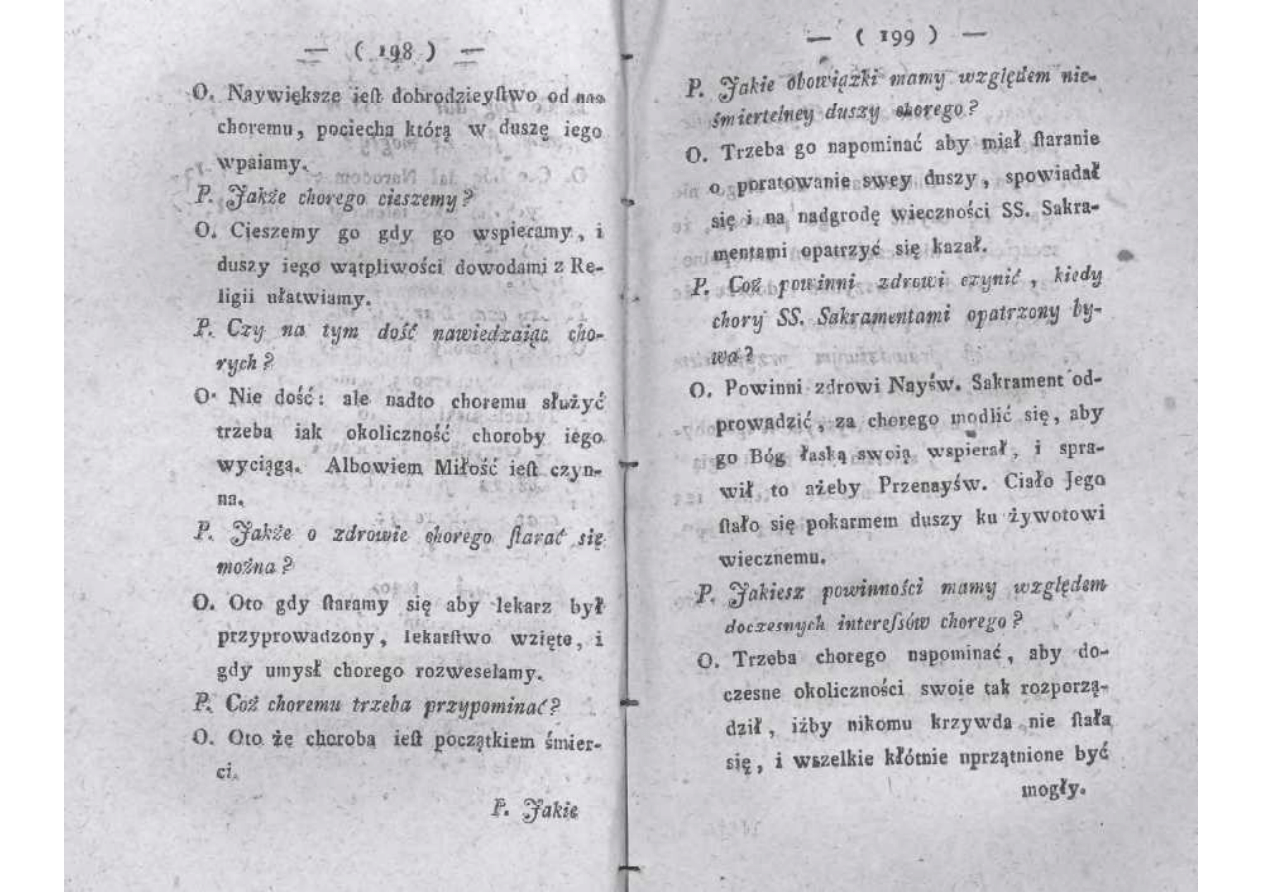 — ( 198 ) —
O. Naywiększe ieſt dobrodzieyſtwo od nas
choremu, pociecha którą w duszę iego
wpaiamy.
P. Jakże chorego cieszemy?
O. Cieszemy go gdy go wspieramy, i
duszy iego wątpliwości dowodami z Re-
ligii ułatwiamy.
P. Czy na tym dość nawiedzaiąc cho-
rych?
O. Nie dość: ale nadto choremu służyć
trzeba iak okoliczność choroby iego
wyciąga. Albowiem Miłość ieſt czyn-
na.
P. Jakże o zdrowie chorego ſtarać się
można?
O. Oto gdy ſtaramy się aby lekarz był
przyprowadzony, lekarſtwo wzięte, i
gdy umysł chorego rozweselamy.
P. Coż choremu trzeba przypominać?
O. Oto że choroba ieſt początkiem śmier-
ci.
P. Jakie
— ( 199 ) —
P. Jakie obowiązki mamy względem nie-
śmiertelney duszy chorego?
O. Trzeba go napominać aby miał ſtaranie
o poratowanie swey duszy, spowiadał
się i na nadgrodę wieczności SS. Sakra-
mentami opatrzyć się kazał.
P. Coż powinni zdrowi czynić, kiedy
chory SS. Sakramentami opatrzony by-
wa?
O. Powinni zdrowi Nayśw. Sakrament od-
prowadzić, za chorego modlić się, aby
go Bóg łaską swoią wspierał, i spra-
wił to ażeby Przenayśw. Ciało Jego
ſtało się pokarmem duszy ku żywotowi
wiecznemu.
P. Jakiesz powinności mamy względem
doczesnych intereſsów chorego?
O. Trzeba chorego napominać, aby do-
czesne okoliczności swoie tak rozporzą-
dził, iżby nikomu krzywda nie ſtała
się, i wszelkie kłótnie uprzątnione być
mogły.